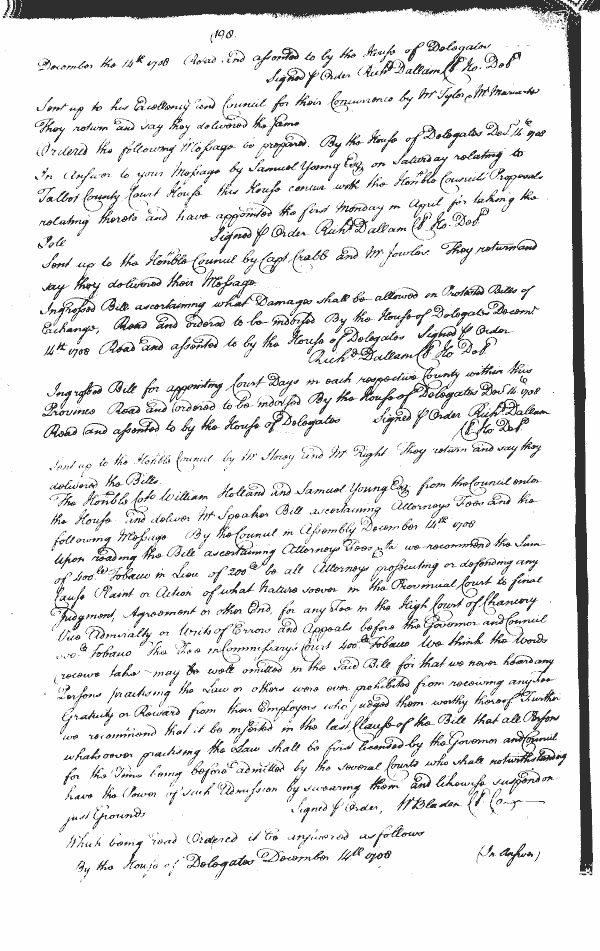 (198)
December the 14th 1708 Read and assented to by the House of Delegates
Signed p Order Richd Dallam Cl Ho. Delts
Sent up to his Excellency and Council for their Concurrence by Mr Tylor, Mr
They return and say they delivered the same
Ordered the following Message be prepared. By the House of Delegates Decr 14th 1708
In Answer to your Message by Samuel Young Esq on Saturday relating to
Talbot County Court House this House concur with the Honble Councils Proposals
relating thereto and have appointed the first Monday in April for taking the
Pole Signed p Order Richd Dallam Cl Ho. Delts
Sent up to the Honble Council by Capt. Crabb and Mr Fowler. They return and
say they delivered their Message
Ingrossed Bill ascertaining what Damages shall be allowed in Protested Bills of
Exchange, Read and ordered to be indorsed By the House of Delegates Decemr
14th 1708 Read and assented to by the House of Delegates Signed p Order
Richd Dallam Cl Ho Delts
Ingrossed Bill for appointing Court Days in each respective County within this
Province Read and ordered to be indorsed By the House of Delegates Decr 14th 1708
Read and assented to by the House of Delegates Signed p Order Richd Dallam
Cl Ho Delts
Sent up to the Honble Council by Mr and Mr Right They return and say they
delivered the Bills.
The Honble Colo William Holland and Samuel Young Esq from the Council enter
the House and deliver Mr Speaker Bill ascertaining Attorneys Fees and the
following Message By the Council in Assembly December 14th 1708
Upon reading the Bill ascertaining Attorneys Fees &ca we recommend the Sum
of 400 lb Tobacco in Lieu of 200 lb be all Attorneys prosecuting or defending any
Cause Plaint or Action of what Nature soever in the Provincial Court to final
Judgment, Agreement or other End, for any Fee in the High Court of Chancery
Vice Admiralty or Writs of Errors and Appeals before the Governor and Council
lb Tobacco The Fee in Commissarys Court 400 lb Tobacco We think the Words
receive take may be well omitted in the said Bill for that we never heard any
Persons practising the Law or others were ever prohibited from receiving any Fee
Gratuity or Reward from their Employers who judged them worthy thereof Further
we recommend that it be inserted in the last Clause of the Bill that all Persons
whatsoever practising the Law shall be first licensed by the Governor and Council
for the Time being before admitted by the several Courts who shall notwithstanding
have the Power of such Admission by swearing them and likewise suspend on
just Grounds Signed p Order, W Bladen Cl Conc
Which being read Ordered it be answered as follows
By the House of Delegates December 14th 1708 (In Answer)